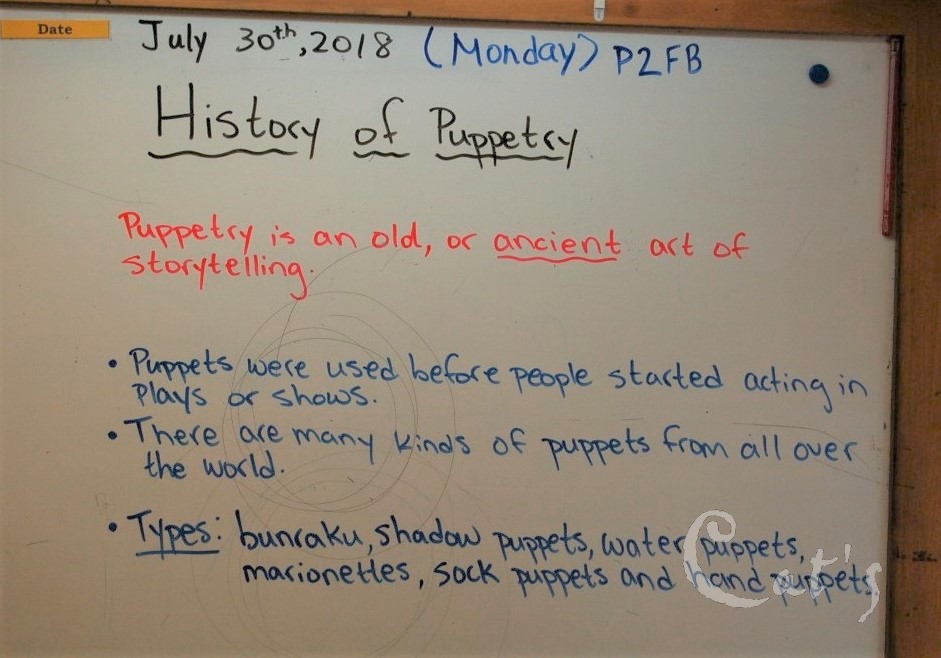 Date
July 30th, 2018 (Monday) P2FB
History of Puppetry
Puppetry is an old, or ancient art of
storytelling.
• Puppets were used before people started acting in
Plays or shows.
• There are many kinds of puppets from all over
the world.
• Types: bunraku, shadow puppets, water puppets,
marionettes, sock puppets and hand puppets.
Cat's